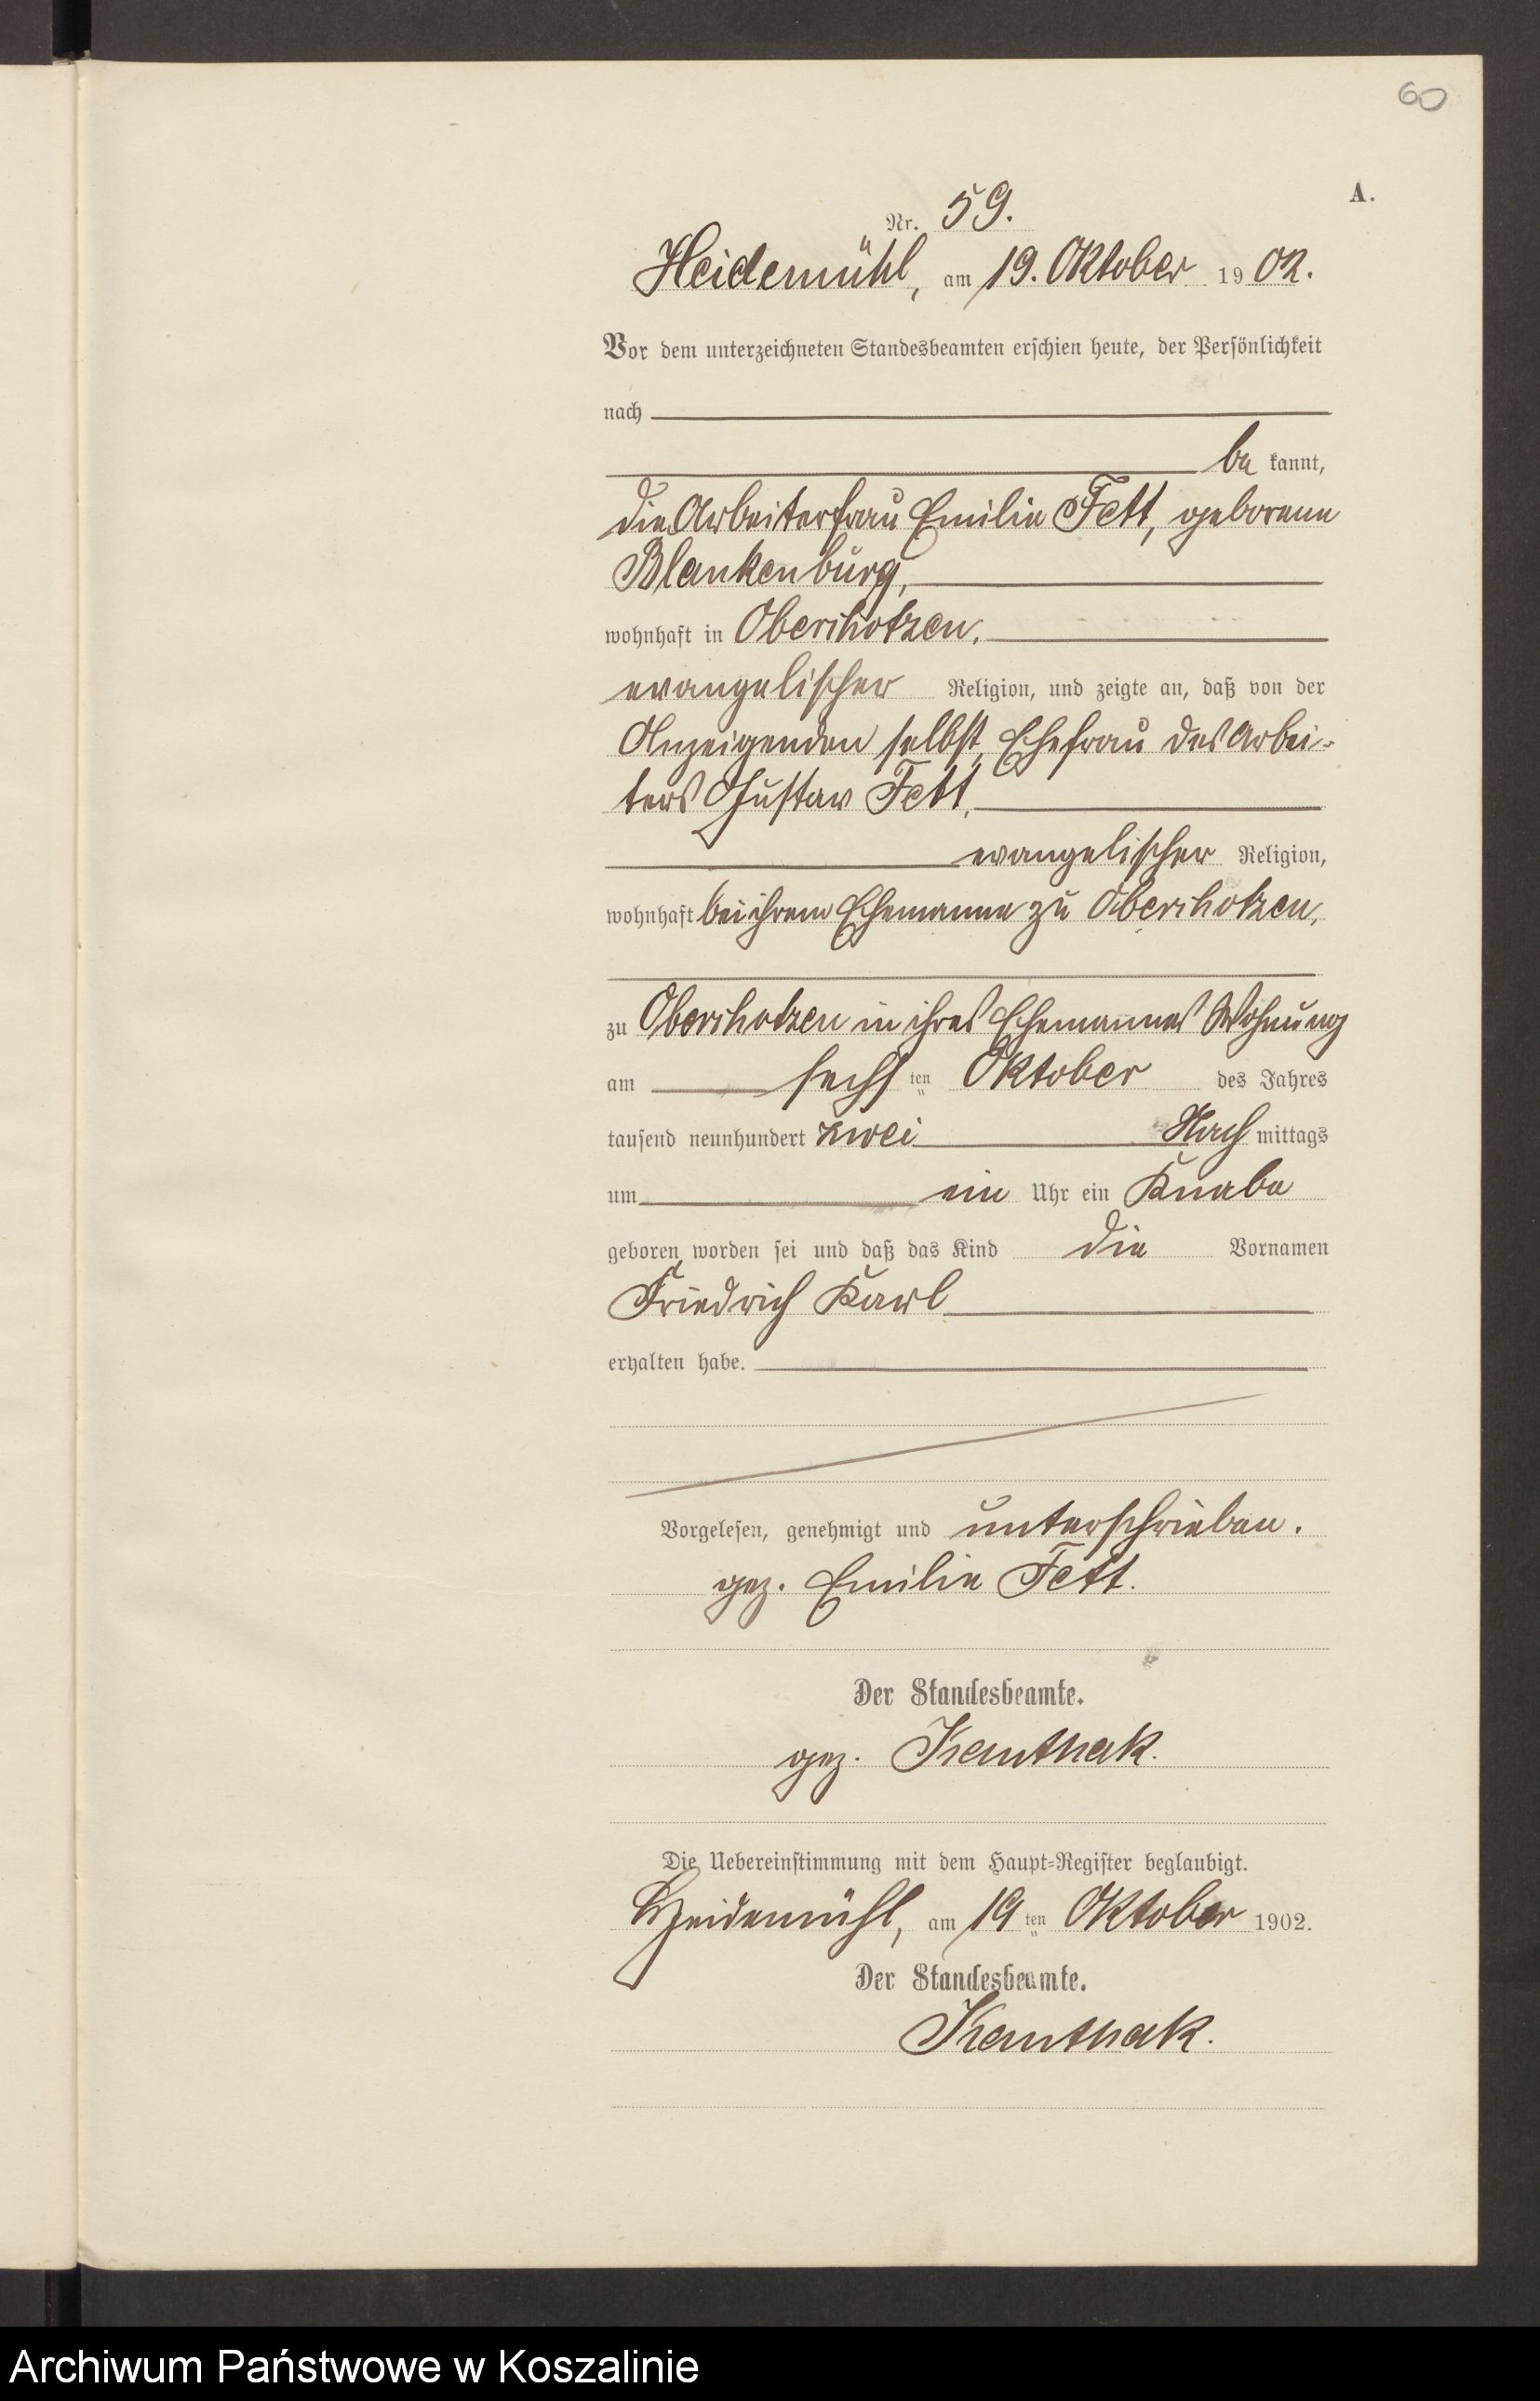 60
A.
Nr. 59.
Heidemühl, am 19. Oktober 1902.
Vor dem unterzeichneten Standesbeamten erschien heute, der Persönlichkeit
nach
be kannt,
die Arbeiterfrau Emilie Fett, geborene
Blankenburg,
wohnhaft in Oberihotzen,
evangelischer Religion, und zeigte an, daß von der
Anzeigenden selbst, Ehefrau des Arbei-
ters Gustav Fett,
evangelischer Religion,
wohnhaft bei ihrem Ehemanne zu Oberihotzen,
zu Oberihotzen in ihres Ehemannes Wohnung
am sechsten Oktober des Jahres
tausend neunhundert zwei Nach mittags
um ein Uhr ein Knabe
geboren worden sei und daß das Kind die Vornamen
Friedrich Karl
erhalten habe.
Vorgelesen, genehmigt und unterschrieben.
gez. Emilie Fett.
Der Standesbeamte.
gez.
Die Uebereinstimmung mit dem Haupt-Register beglaubigt.
Heidemühl, am 19ten Oktober 1902.
Der Standesbeamte.
Archiwum Państwowe w Koszalinie